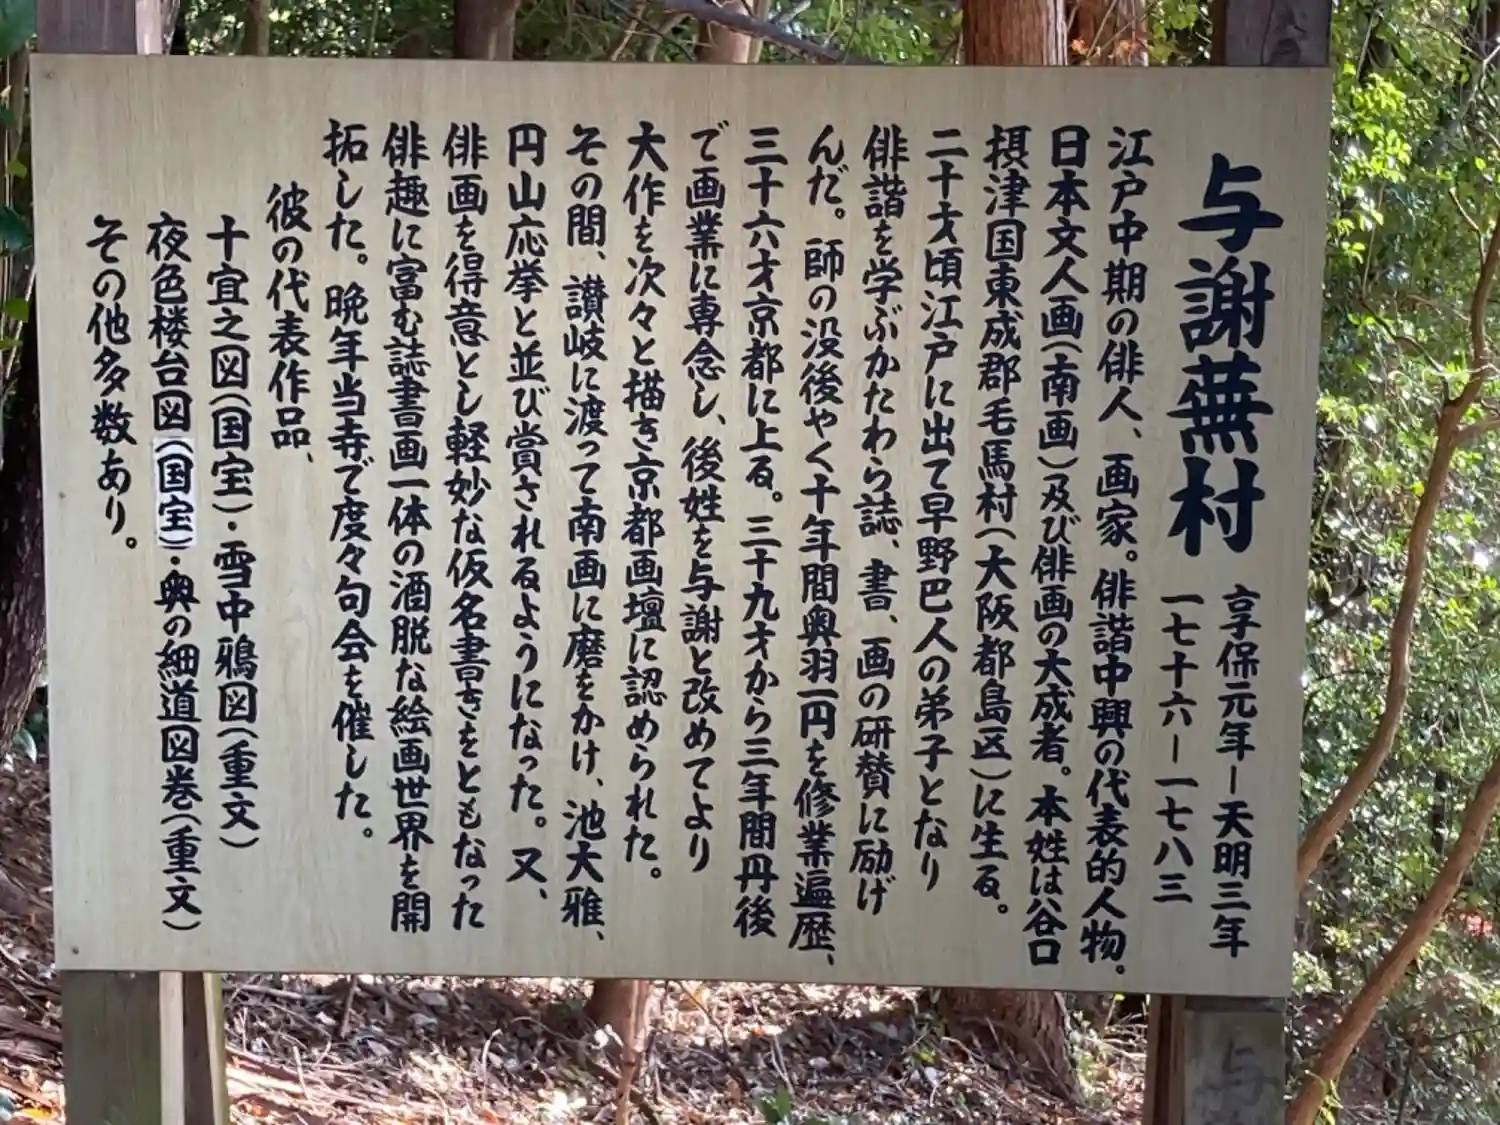 与謝蕪村
享保元年－天明三年
一七十六－一七八三
江戸中期の俳人、画家。俳諧中興の代表的人物。
日本文人画(南画)及び俳画の大成者。本姓は谷口
摂津国東成郡毛馬村(大阪都島区)に生る。
二十才頃江戸に出て早野巴人の弟子となり
俳諧を学ぶかたわら誌、書、画の研賛に励げ
んだ。師の没後やく十年間奥羽一円を修業遍歴、
三十六才京都に上る。三十九才から三年間丹後
で画業に専念し、後姓を与謝と改めてより
大作を次々と描き京都画壇に認められた。
その間、讃岐に渡って南画に磨をかけ、池大雅、
円山応挙と並び賞されるようになった。又、
俳画を得意とし軽妙な仮名書きをともなった
俳趣に富む誌書画一体の酒脱な絵画世界を開
拓した。晩年当寺で度々句会を催した。
彼の代表作品、
十宜之図(国宝)・雪中鴉図(重文)
夜色楼台図(国宝)・奥の細道図巻(重文)
その他多数あり。
与